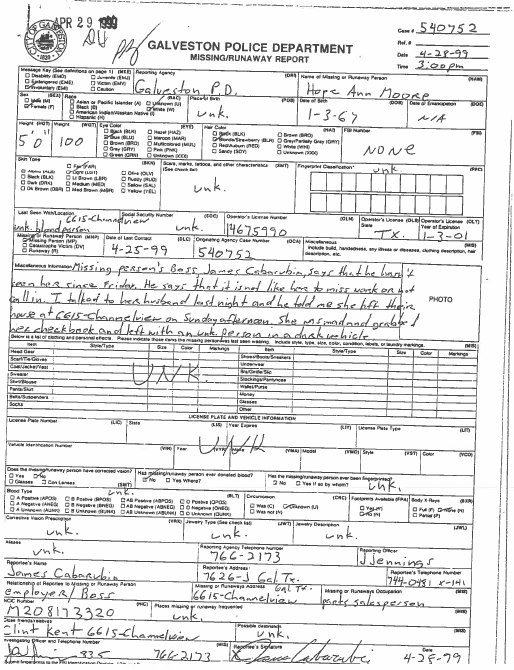 APR 29 1999
Case # 540752
Ref. #
Date 4-28-99
Time 3:00pm
GALVESTON POLICE DEPARTMENT
MISSING/RUNAWAY REPORT
Message Key (See definitions on page 1) (MKE)
Disability (EMD) Juvenile (EMJ)
Endangered (EME) Victim (EMV)
Involuntary (EMI) Caution
Reporting Agency (ORI)
Galveston P.D.
Name of Missing or Runaway Person (NAM)
Hope Ann Moore
Sex (SEX)
Male (M)
Female (F)
Race (RAC)
Asian or Pacific Islander (A) Unknown (U)
Black (B) White (W)
American Indian/Alaskan Native (I)
Place of Birth (POB)
unk.
Date of Birth (DOB)
1-3-67
Date of Emancipation (DOE)
N/A
Height (HGT)
5'0"
Weight (WGT)
100
Eye Color (EYE)
Black (BLK) Hazel (HAZ)
Blue (BLU) Maroon (MAR)
Brown (BRO) Multicolored (MUL)
Gray (GRY) Pink (PNK)
Green (GRN) Unknown (XXX)
Hair Color
Black (BLK) Brown (BRO)
Blonde/Strawberry (BLN) Gray/Partially Gray (GRY)
Red/Auburn (RED) White (WHI)
Sandy (SDY) Unknown (XXX)
FBI Number (FBI)
NONE
Skin Tone (SKN)
Fair (FAR)
Albino (ALB) Light (LGT) Olive (OLV)
Black (BLK) Lt Brown (LBR) Ruddy (RUD)
Dark (DRK) Medium (MED) Sallow (SAL)
Dk Brown (DBR) Med Brown (MBR) Yellow (YEL)
Scars, marks, tattoos, and other characteristics (SMT)
(See check list)
unk.
Fingerprint Classification (FPC)
unk
Last Seen With/Location
6615-Channelview
unk. blond person
Social Security Number (SOC)
unk.
Operator's License Number (OLN)
14675990
Operator's License State (OLS)
Tx.
Operator's License Year of Expiration (OLY)
1-3-01
Missing or Runaway Person (MNP)
Missing Person (MP)
Catastrophe Victim (DV)
Runaway (R)
Date of Last Contact (DLC)
4-25-99
Originating Agency Case Number (OCA)
540552
Miscellaneous (MIS)
Include build, handedness, any illness or diseases, clothing description, hair description, etc.
Miscellaneous Information
Missing person's Boss, James Cabarubia, says that he hasn't
seen her since Friday. He says that it is not like her to miss work or not
call in. I talked to her husband last night and he told me she left their
house at 6615-Channelview on Sunday afternoon. She was mad and grabbed
her checkbook and left with an unk. person in a dark vehicle.
PHOTO
Below is a list of clothing and personal effects. Please indicate those items the missing person was last seen wearing. Include style, type, size, color, condition, labels, or laundry markings. (MIS)
Item Style/Type Size Color Markings Item Style/Type Size Color Markings
Head Gear Shoes/Boots/Sneakers
Scarf/Tie/Gloves Underwear
Coat/Jacket/Vest Bra/Girdle/Slip
Sweater Stockings/Pantyhose
Shirt/Blouse Wallet/Purse
Pants/Skirt Money
Belts/Suspenders Glasses
Socks Other
UNK.
LICENSE PLATE AND VEHICLE INFORMATION
License Plate Number (LIC) State (LIS) Year Expires (LIY) License Plate Type (LIT)
Vehicle Identification Number (VIN) Year (VYR) Make (VMA) Model (VMO) Style (VST) Color (VCO)
UNK
Does the missing/runaway person have corrected vision?
Yes No
Glasses Con Lenses (SMT)
Has missing/runaway person ever donated blood?
No Yes Where?
Has the missing/runaway person ever been fingerprinted?
No Yes If so by whom?
unk.
Blood Type (BLT)
unk.
A Positive (APOS) B Positive (BPOS) AB Positive (ABPOS) O Positive (OPOS)
A Negative (ANEG) B Negative (BNEG) AB Negative (ABNEG) O Negative (ONEG)
A Unknown (AUNK) B Unknown (BUNK) AB Unknown (ABUNK) O Unknown (OUNK)
Circumcision (CRC)
Was (C) Unknown (U)
Was not (N)
Footprints Available (FPA)
Yes (Y)
No (N)
Body X-Rays (BXR)
Full (F) None (N)
Partial (P)
Corrective Vision Prescription (VRX)
unk.
Jewelry Type (See check list) (JWT)
unk.
Jewelry Description (JWL)
unk.
Aliases
unk.
Reporting Agency Telephone Number
766-2173
Reporting Officer
J Jennings
Reportee's Name
James Cabarubia
Reportee's Address
7626-J Gal Tx.
Reportee's Telephone Number
744-0481 x-141
Relationship of Reportee to Missing or Runaway Person
employer/Boss
Missing or Runaway's Address
Gal Tx.
6615-Channelview
Missing or Runaways Occupation (MIS)
salesperson
NCIC Number (NIC)
M208173320
Places missing or runaway frequented (MIS)
unk.
Close friends/relatives
Clint Kent 6615-Channelview
Possible destination (MIS)
unk.
Investigating Officer and Telephone Number
835 766-2173
Reportee's Signature
Date
4-25-99